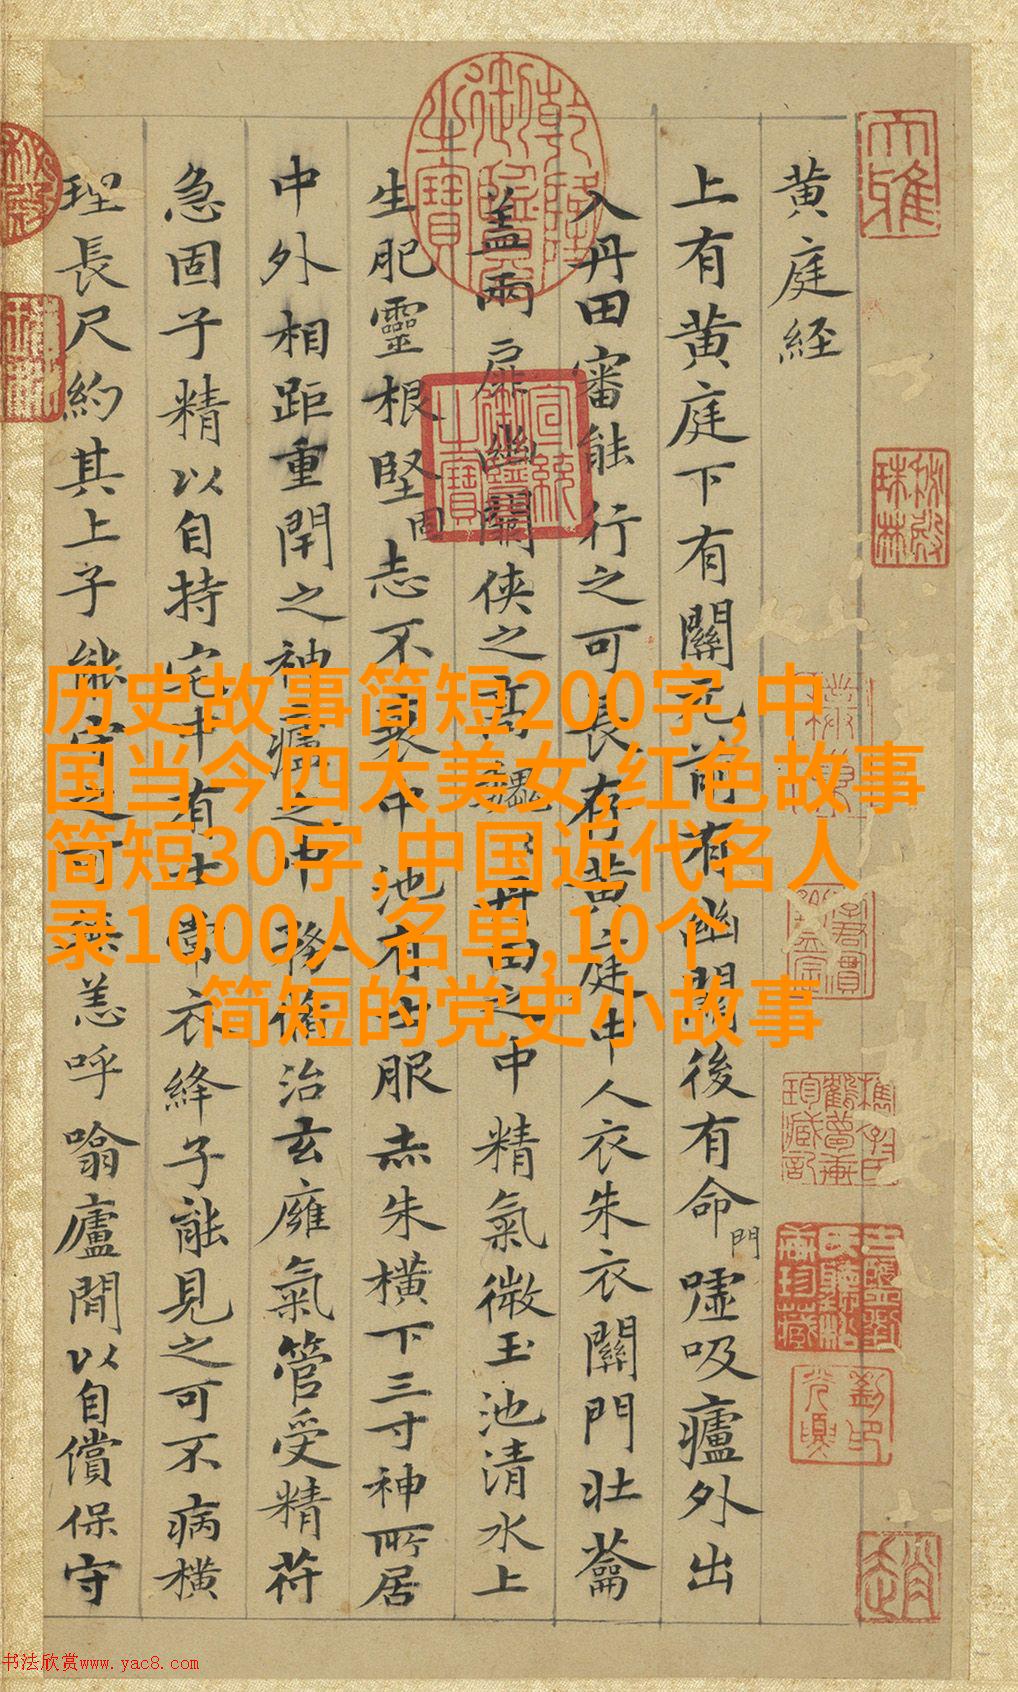 黄庭経
上有黄庭下有關元前有幽闕後有命門噓吸廬外出
入丹田審能行之可長存黄庭中人衣朱衣關門壮蘥
蓋兩扉幽關侠之髙巍丹田之中精氣微玉池清水上
生肥靈根堅固志不衰中池有士服赤朱横下三寸神所居
中外相距重閇之神廬之中務脩治玄廱氣管受精苻
急固子精以自持宅中有士常衣絳子能見之可不病横
理長尺約其上子能守之可無恙呼噏廬閒以自償保守
历史故事简短200字,中
国当今四大美女,红色故事
简短30字,中国近代名人
录1000人名单,10个
简短的党史小故事
乾隆御覽之寶
宣統御覽之寶
书法欣赏www.yac8.com